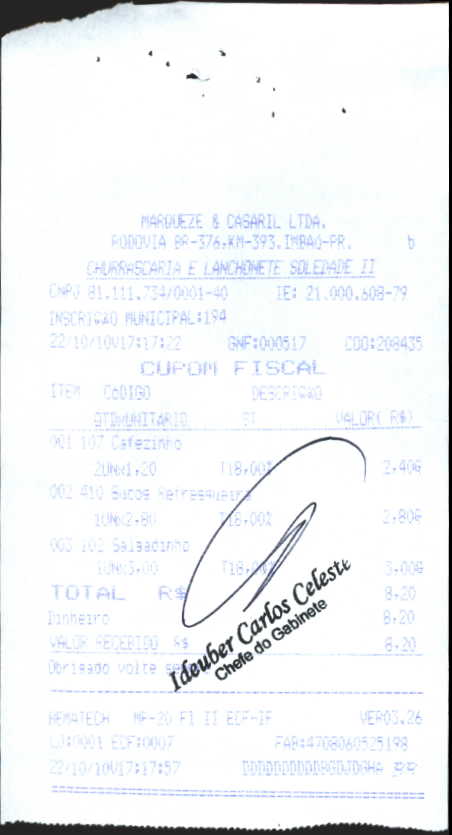 MARQUEZE & CASARIL LTDA.
RODOVIA BR-376,KM-393,IMBAÚ-PR. b
CHURRASCARIA E LANCHONETE SOLEDADE II
CNPJ 81.111.734/0001-40 IE: 21.000.608-79
INSCRIÇÃO MUNICIPAL:194
22/10/10V17:17:22 GNF:000517 COO:208435
CUPOM FISCAL
ITEM CóDIGO DESCRIÇÃO
QTDxUNITARIO ST VALOR( R$)
001 107 Cafezinho
2UNx1,20 T18,00% 2,40G
002 410 Sucos Refresqueira
1UNx2,80 T18,00% 2,80G
003 103 Salgadinho
1UNx3,00 T18,00% 3,00G
TOTAL R$ 8,20
Dinheiro 8,20
VALOR RECEBIDO R$ 8,20
Obrigado volte
Ideuber Carlos Celeste
Chefe do Gabinete
BEMATECH MP-20 FI II ECF-IF VER03.26
LJ:0001 ECF:0007 FAB:4708060525198
22/10/10V17:17:57